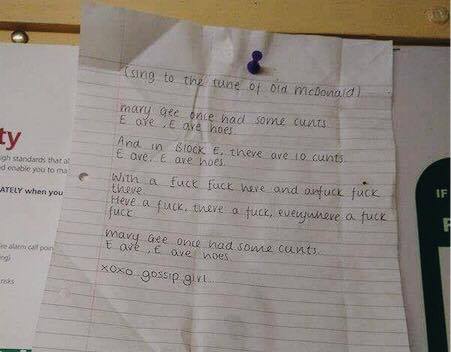 (sing to the tune of Old McDonald)
mary Gee once had some cunts.
E are, E are hoes.
And in Block E, there are 10 cunts.
E are, E are hoes.
With a fuck fuck here and anfuck fuck
there
Here a fuck, there a fuck, everywhere a fuck
fuck
mary Gee once had some cunts.
E are, E are hoes.
xoxo gossip girl
ty
gh standards that al
d enable you to ma
ATELY when you
re alarm call poin
ng)
risks
IF